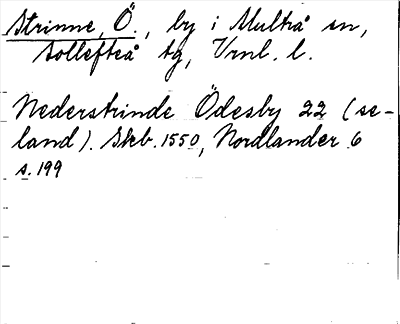 Strinne, Ö., by i Multrå sn,
Sollefteå tg, Vrnl. l.
Nederstrinde Ödesby 22 (se-
land). Skb. 1550, Nordlander 6
s. 199